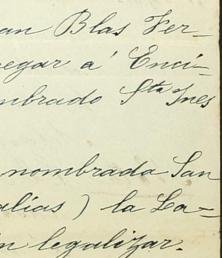 an Blas Fer-
egar a' Enci-
mbrado Sta Ines
nombrada San
alias) la La-
n legalizar.